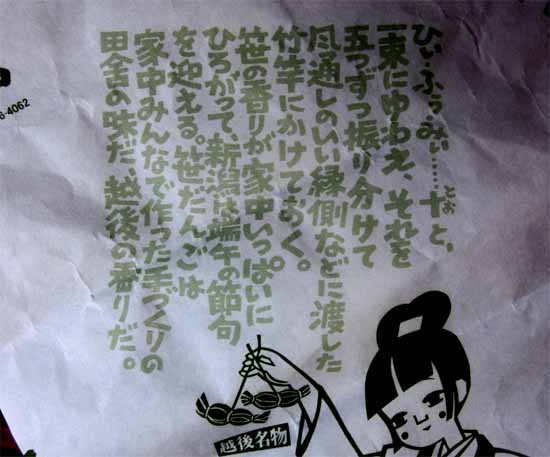 ひぃ・ふぅ・みぃ……十と、
とお
一束にゆわえ、それを
五つずつ振り分けて
風通しのいい縁側などに渡した
竹竿にかけておく。
笹の香りが家中いっぱいに
ひろがって、新潟は端午の節句
を迎える。笹だんごは
家中みんなで作った手づくりの
田舎の味だ、越後の香りだ。
6-4062
越後名物